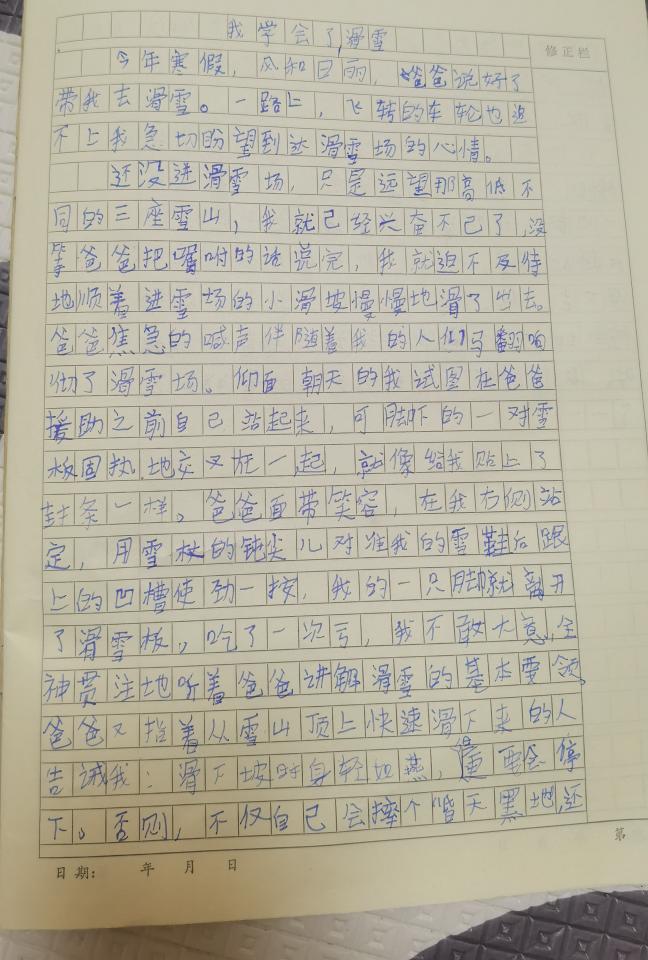 我学会了滑雪
修正栏
今年寒假，风和日丽，爸爸说好了
带我去滑雪。一路上，飞转的车轮也追
不上我急切盼望到达滑雪场的心情。
还没进滑雪场，只是远望那高低不
同的三座雪山，我就已经兴奋不已了，没
等爸爸把嘱咐的话说完，我就迫不及待
地顺着进雪场的小滑坡慢慢地滑了出去。
爸爸焦急的喊声伴随着我的人仰马翻响
彻了滑雪场。仰面朝天的我试图在爸爸
援助之前自己站起来，可脚下的一对雪
板固执地交叉在一起，就像给我贴上了
封条一样。爸爸面带笑容，在我右侧站
定，用雪杖的钝尖儿对准我的雪鞋后跟
上的凹槽使劲一按，我的一只脚就离开
了滑雪板。吃了一次亏，我不敢大意，全
神贯注地听着爸爸讲解滑雪的基本要领，
爸爸又指着从雪山顶上快速滑下来的人
告诫我：滑下坡时身轻如燕，重要会停
下。否则，不仅自己会摔个昏天黑地，还
第
日期： 年 月 日